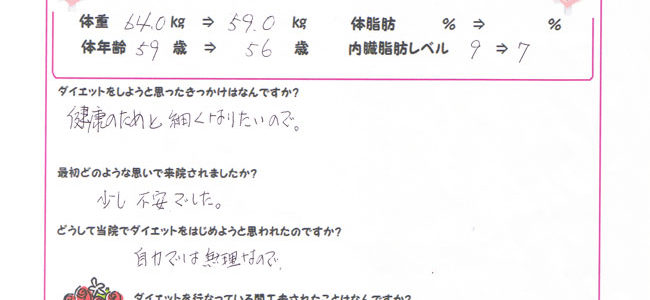 体重 64.0 kg ⇒ 59.0 kg 体脂肪 % ⇒ %
体年齢 59 歳 ⇒ 56 歳 内臓脂肪レベル 9 ⇒ 7
ダイエットをしようと思ったきっかけはなんですか？
健康のためと細くなりたいので。
最初どのような思いで来院されましたか？
少し不安でした。
どうして当院でダイエットをはじめようと思われたのですか？
自力では無理なので、
ダイエットを行なっている間工夫されたことはなんですか？